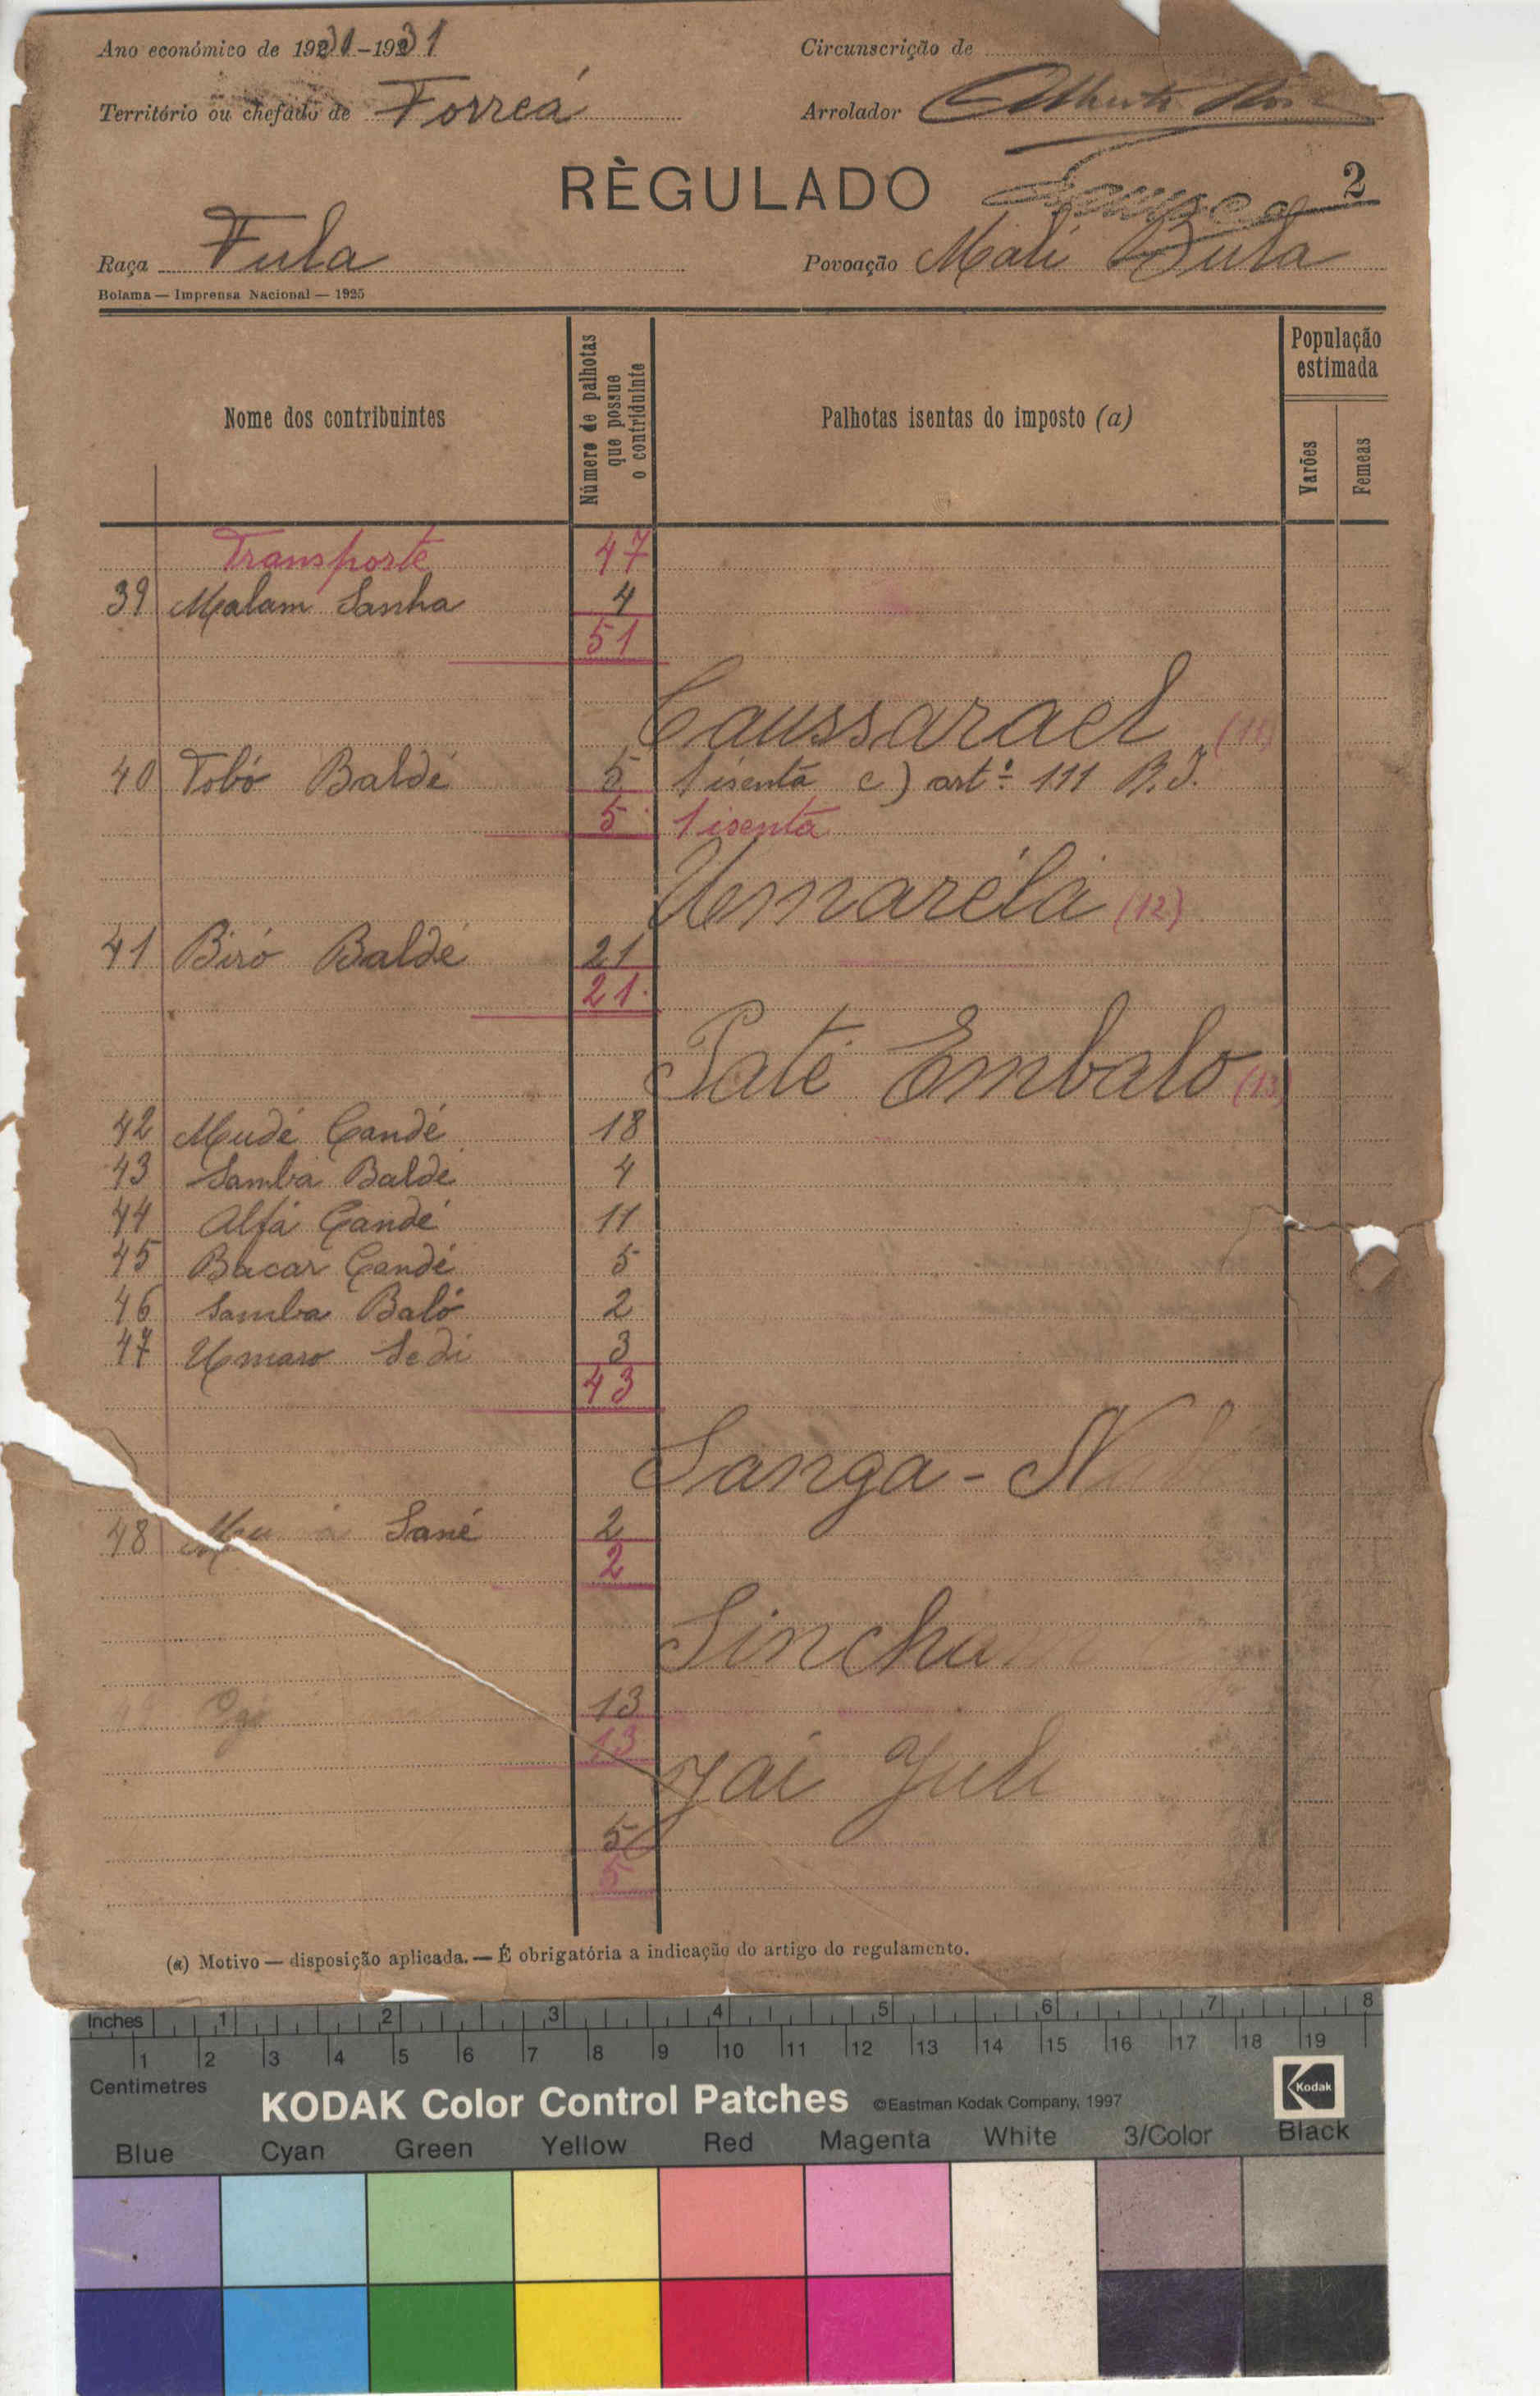 Ano económico de 1931-1931
Circunscrição de
Território ou chefado de Forreá
Arrolador Alberto
RÈGULADO
2
Raça Fula
Povoação Mali Bula
Bolama — Imprensa Nacional — 1925
Nome dos contribuintes
Número de palhotas que possue o contriduinte
Palhotas isentas do imposto (a)
População estimada
Varões
Femeas
Transporte 47
39 Malam Sanha 4
51
Caussarael (11)
40 Tobó Baldé 5 1 isenta c) artº 111 R. I.
5 1 isenta
Umaréla (12)
41 Biró Baldé 21
21
Paté Embalo (13)
42 Mudé Candé 18
43 Samba Baldé 4
44 Alfá Candé 11
45 Bacar Candé 5
46 Samba Baló 2
47 Umaro Sedi 3
43
Sanga-
48 Sané 2
2
13
13
5
5
(a) Motivo — disposição aplicada. — É obrigatória a indicação do artigo do regulamento.
Inches 1 2 3 4 5 6 7 8
1 2 3 4 5 6 7 8 9 10 11 12 13 14 15 16 17 18 19
Centimetres
KODAK Color Control Patches ©Eastman Kodak Company, 1997 Kodak
Blue Cyan Green Yellow Red Magenta White 3/Color Black